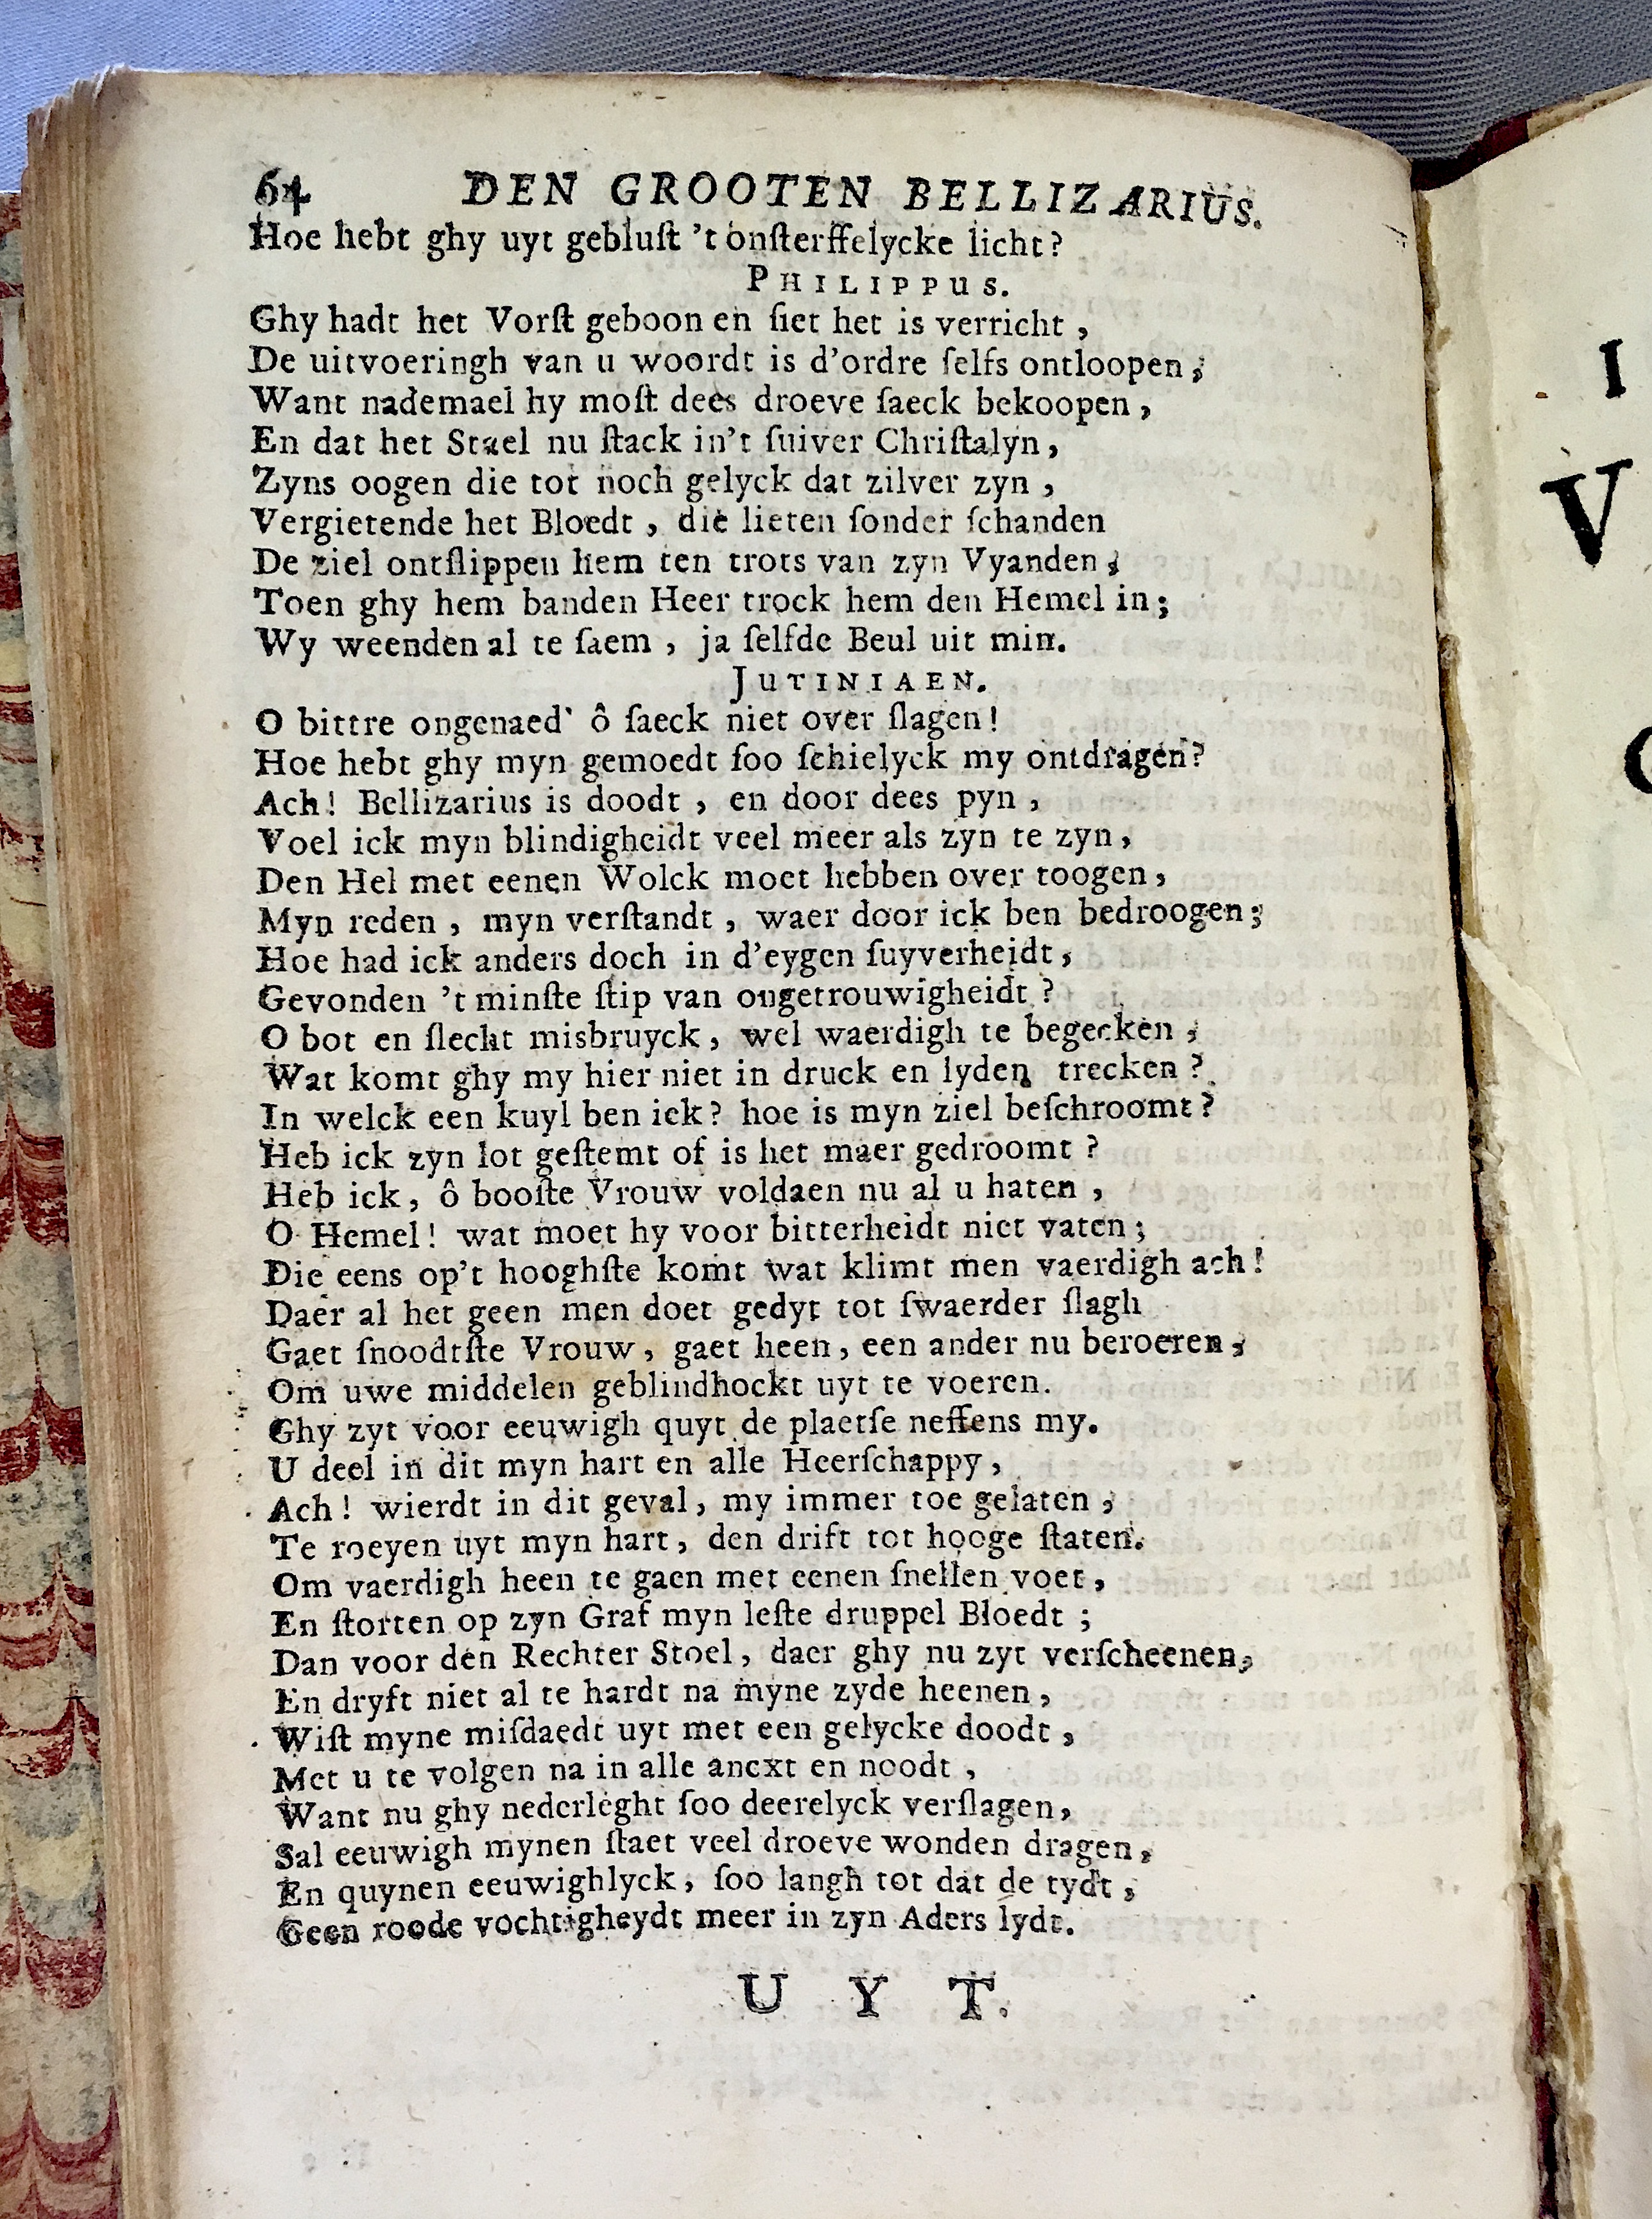 64 DEN GROOTEN BELLIZARIUS.
Hoe hebt ghy uyt gebluſt 't onſterffelycke licht?
PHILIPPUS.
Ghy hadt het Vorſt geboon en ſiet het is verricht,
De uitvoeringh van u woordt is d'ordre ſelfs ontloopen;
Want nademael hy moſt dees droeve ſaeck bekoopen,
En dat het Stael nu ſtack in't ſuiver Chriſtalyn,
Zyns oogen die tot noch gelyck dat zilver zyn,
Vergietende het Bloedt, die lieten ſonder ſchanden
De ziel ontſlippen hem ten trots van zyn Vyanden;
Toen ghy hem banden Heer trock hem den Hemel in;
Wy weenden al te ſaem, ja ſelfde Beul uit min.
JUTINIAEN.
O bittre ongenaed' ô ſaeck niet over ſlagen!
Hoe hebt ghy myn gemoedt ſoo ſchielyck my ontdragen?
Ach! Bellizarius is doodt, en door dees pyn,
Voel ick myn blindigheidt veel meer als zyn te zyn,
Den Hel met eenen Wolck moet hebben over toogen,
Myn reden, myn verſtandt, waer door ick ben bedroogen;
Hoe had ick anders doch in d'eygen ſuyverheidt,
Gevonden 't minſte ſtip van ongetrouwigheidt?
O bot en ſlecht misbruyck, wel waerdigh te begecken,
Wat komt ghy my hier niet in druck en lyden trecken?
In welck een kuyl ben ick? hoe is myn ziel beſchroomt?
Heb ick zyn lot geſtemt of is het maer gedroomt?
Heb ick, ô booſte Vrouw voldaen nu al u haten,
O Hemel! wat moet hy voor bitterheidt niet vaten;
Die eens op't hooghſte komt wat klimt men vaerdigh ach!
Daer al het geen men doet gedyt tot ſwaerder ſlagh
Gaet ſnoodtſte Vrouw, gaet heen, een ander nu beroeren,
Om uwe middelen geblindhockt uyt te voeren.
Ghy zyt voor eeuwigh quyt de plaetſe neffens my.
U deel in dit myn hart en alle Heerſchappy,
Ach! wierdt in dit geval, my immer toe gelaten,
Te roeyen uyt myn hart, den drift tot hooge ſtaten.
Om vaerdigh heen te gaen met eenen ſnellen voet,
En ſtorten op zyn Graf myn leſte druppel Bloedt;
Dan voor den Rechter Stoel, daer ghy nu zyt verſcheenen,
En dryft niet al te hardt na myne zyde heenen,
Wiſt myne miſdaedt uyt met een gelycke doodt,
Met u te volgen na in alle ancxt en noodt,
Want nu ghy nederleght ſoo deerelyck verſlagen,
Sal eeuwigh mynen ſtaet veel droeve wonden dragen,
En quynen eeuwighlyck, ſoo langh tot dat de tydt,
Geen roode vochtigheydt meer in zyn Aders lydt.
UYT.
I
V